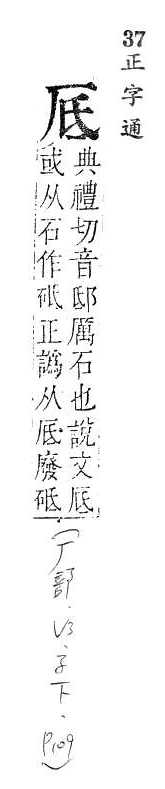 37正字通
厎
典禮切音邸厲石也說文厎
或从石作砥正譌从厎廢砥
(厂部.V3.子下.P109)